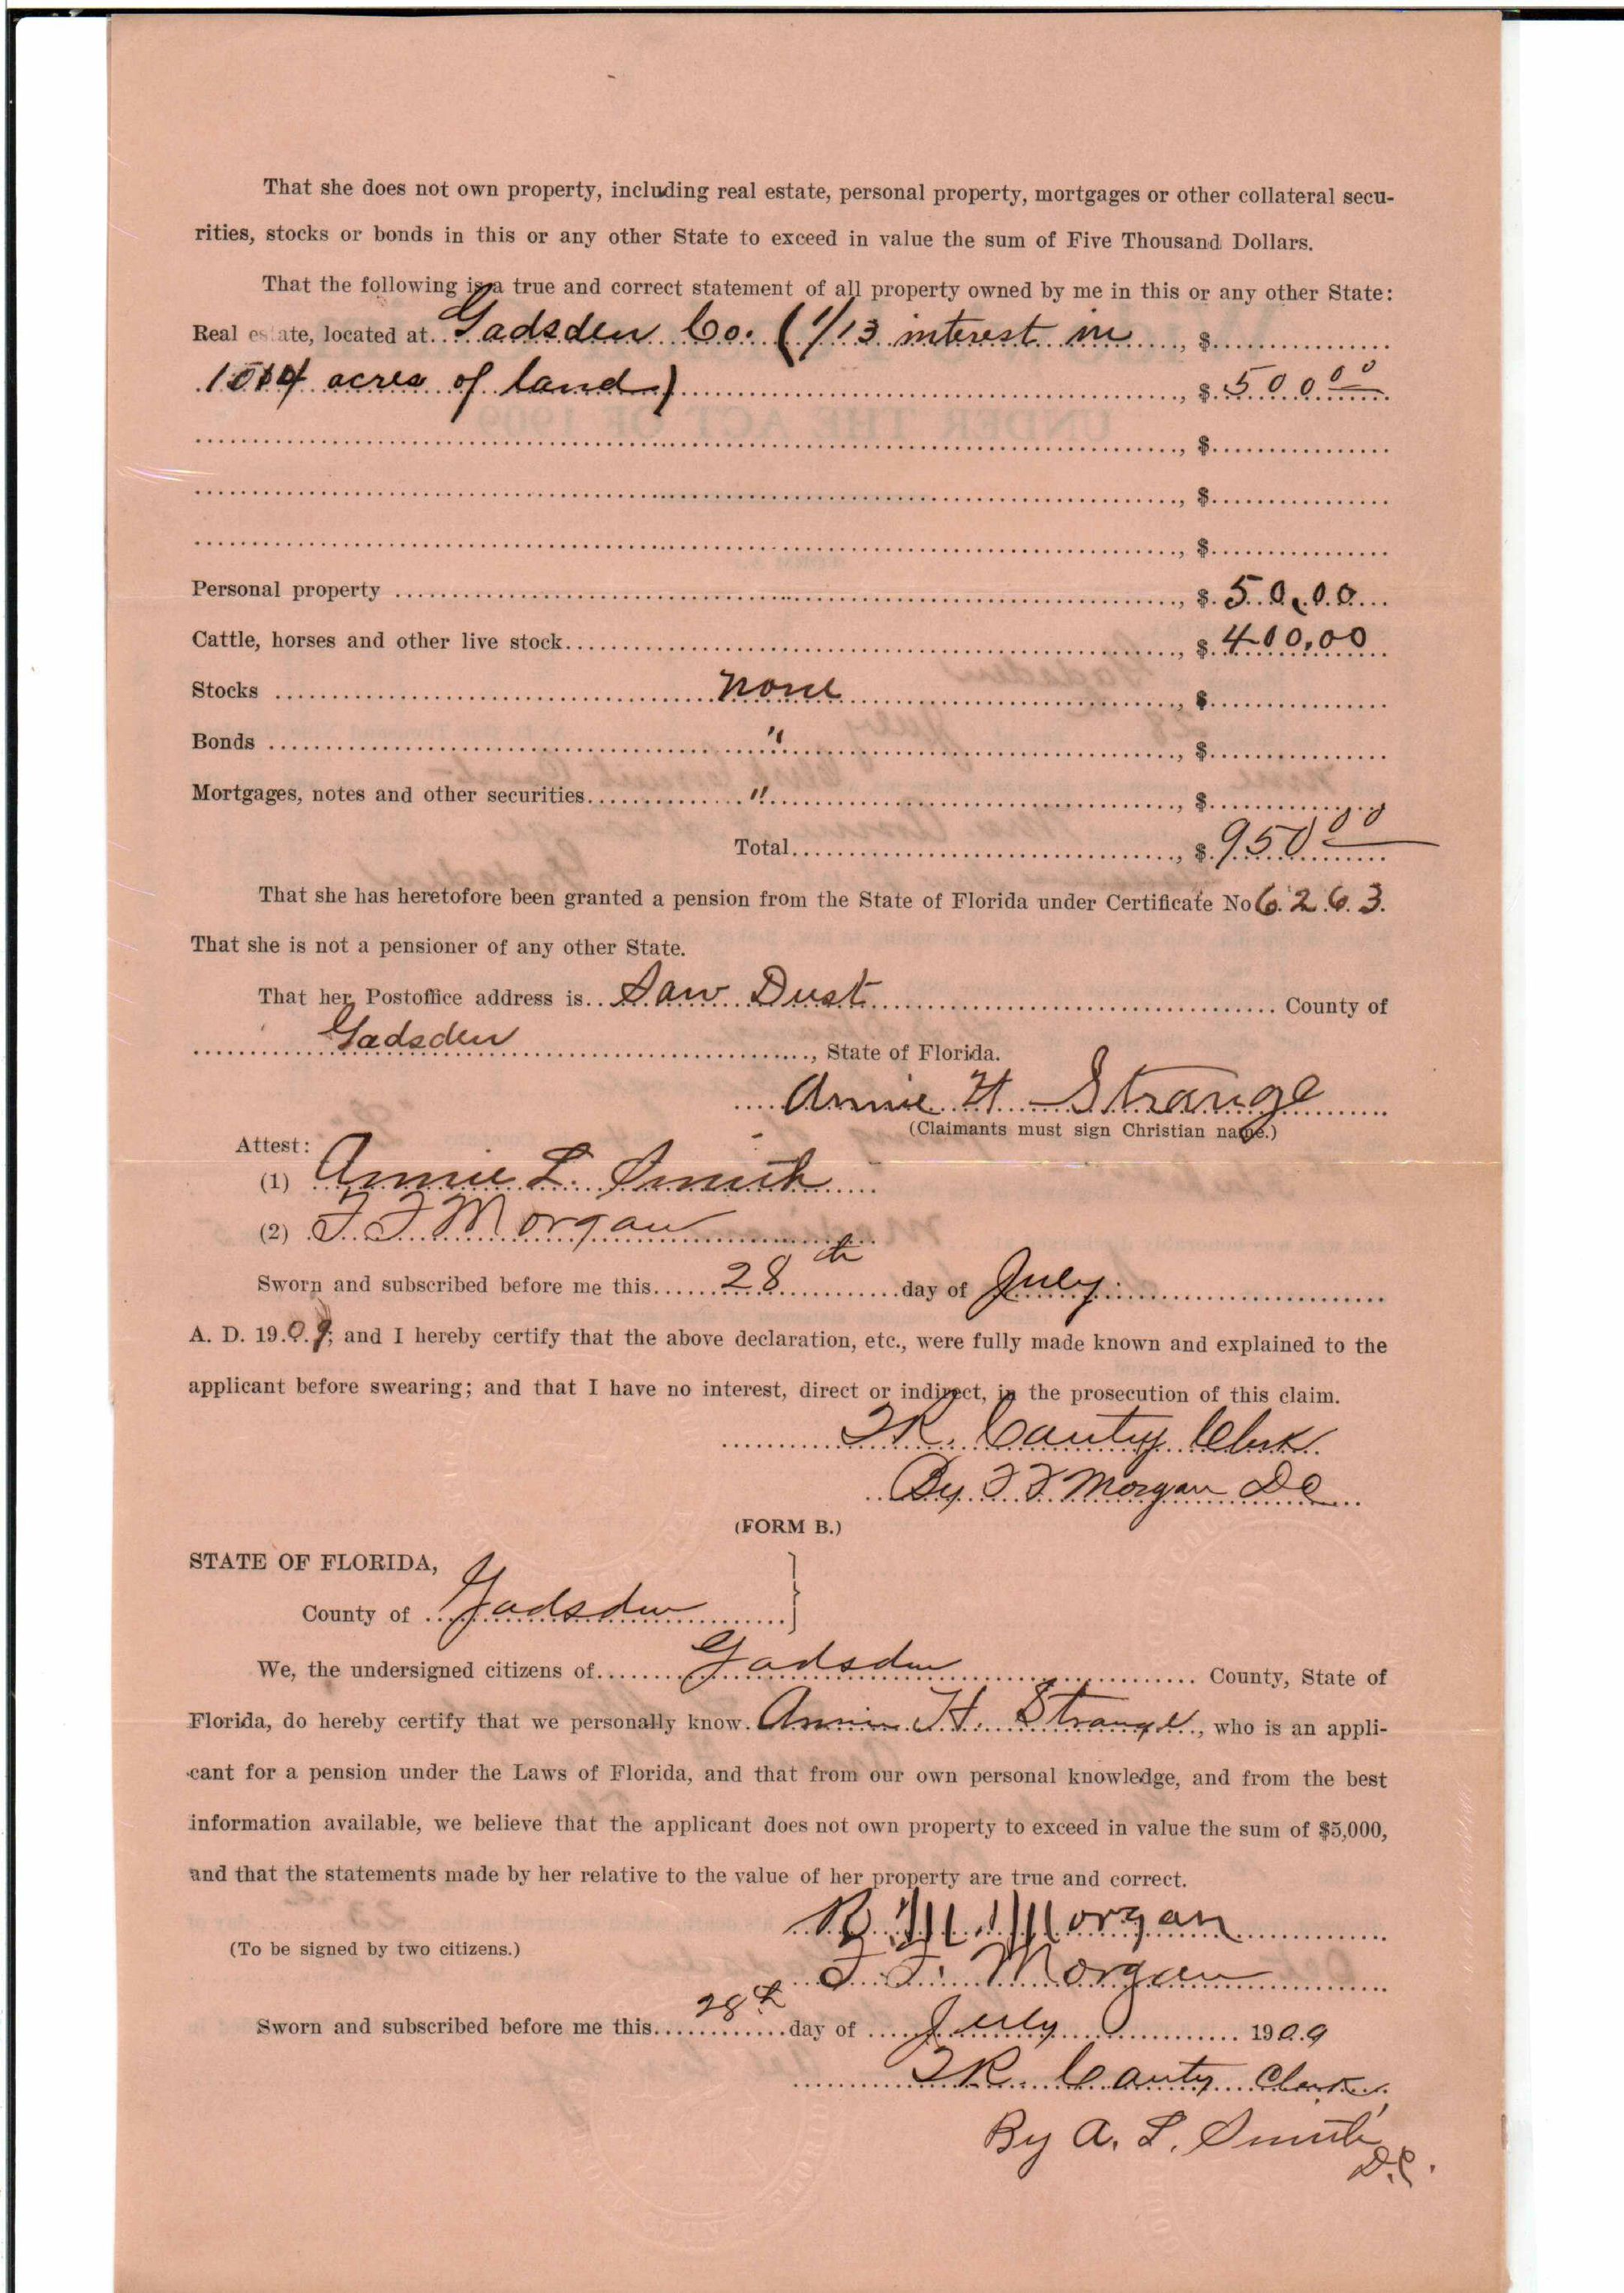 That she does not own property, including real estate, personal property, mortgages or other collateral secu-
rities, stocks or bonds in this or any other State to exceed in value the sum of Five Thousand Dollars.
That the following is a true and correct statement of all property owned by me in this or any other State:
Real estate, located at Gadsden Co. (1/13 interest in , $
acres of land) , $ 500 00
, $
, $
, $
Personal property , $ 50.00
Cattle, horses and other live stock , $ 400.00
Stocks none , $
Bonds " , $
Mortgages, notes and other securities " , $
Total , $ 950 00
That she has heretofore been granted a pension from the State of Florida under Certificate No 6263.
That she is not a pensioner of any other State.
That her Postoffice address is Saw Dust County of
Gadsden , State of Florida.
Annie H Strange
(Claimants must sign Christian name.)
Attest:
(1) Annie L. Smith
(2) F F Morgan
Sworn and subscribed before me this 28th day of July
A. D. 1909; and I hereby certify that the above declaration, etc., were fully made known and explained to the
applicant before swearing; and that I have no interest, direct or indirect, in the prosecution of this claim.
Canty Clerk
By F F Morgan DC
(FORM B.)
STATE OF FLORIDA, }
County of Gadsden
We, the undersigned citizens of Gadsden County, State of
Florida, do hereby certify that we personally know Annie H. Strange, who is an appli-
cant for a pension under the Laws of Florida, and that from our own personal knowledge, and from the best
information available, we believe that the applicant does not own property to exceed in value the sum of $5,000,
and that the statements made by her relative to the value of her property are true and correct.
Morgan
(To be signed by two citizens.)
F. F. Morgan
Sworn and subscribed before me this 28th day of July 1909
Canty Clerk,
By A. L. Smith
D.C.